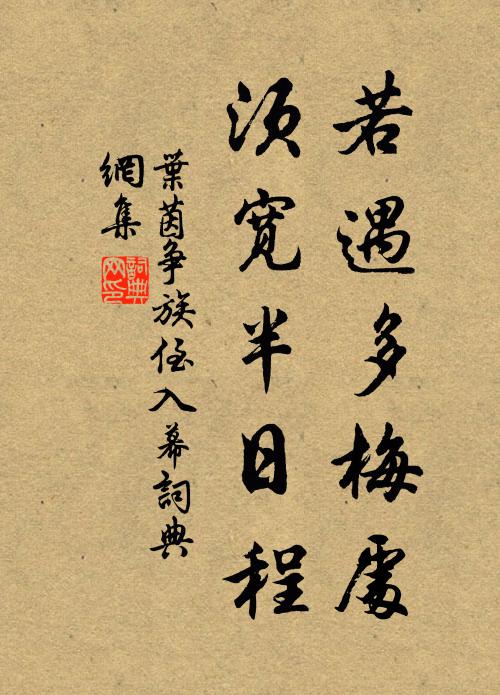 若遇多梅處
須寬半日程
葉茵爭族侄入幕詞典
網集
詞典網印